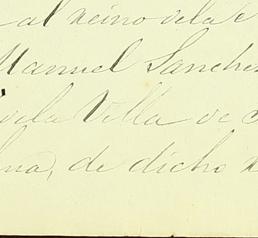 al reino de la
Manuel Sanchez
de la Villa de
na, de dicho